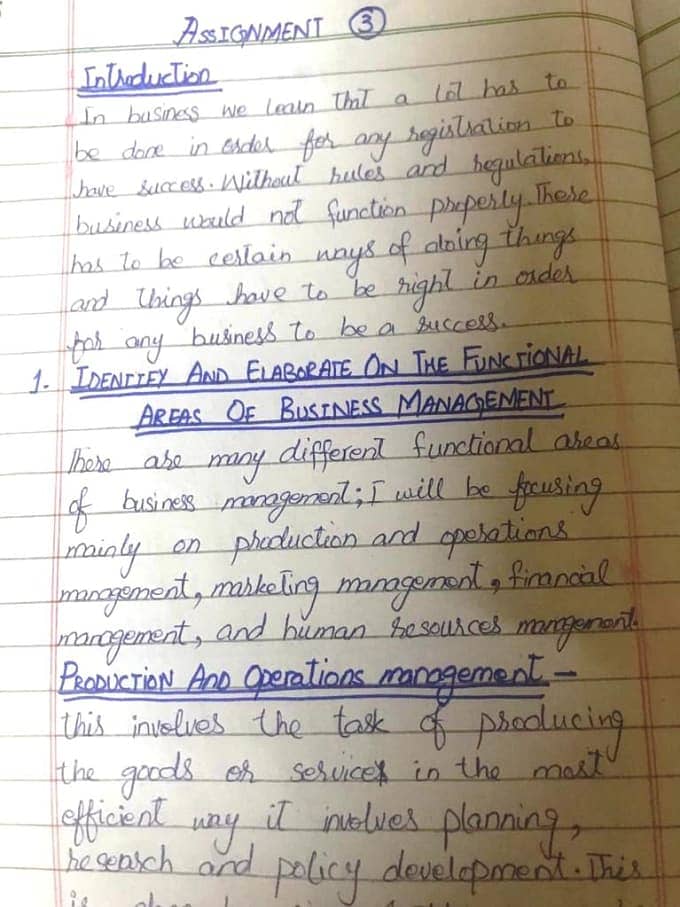 ASSIGNMENT 3
Introduction
In business we learn that a lot has to
be done in order for any registration to
have success. Without rules and regulations,
business would not function properly. There
has to be certain ways of doing things
and things have to be right in order
for any business to be a success.
1. IDENTIFY AND ELABORATE ON THE FUNCTIONAL
AREAS OF BUSINESS MANAGEMENT
There are many different functional areas
of business management; I will be focusing
mainly on production and operations
management, marketing management, financial
management, and human resources management.
PRODUCTION AND Operations management -
this involves the task of producing
the goods or services in the most
efficient way it involves planning,
research and policy development. This
is